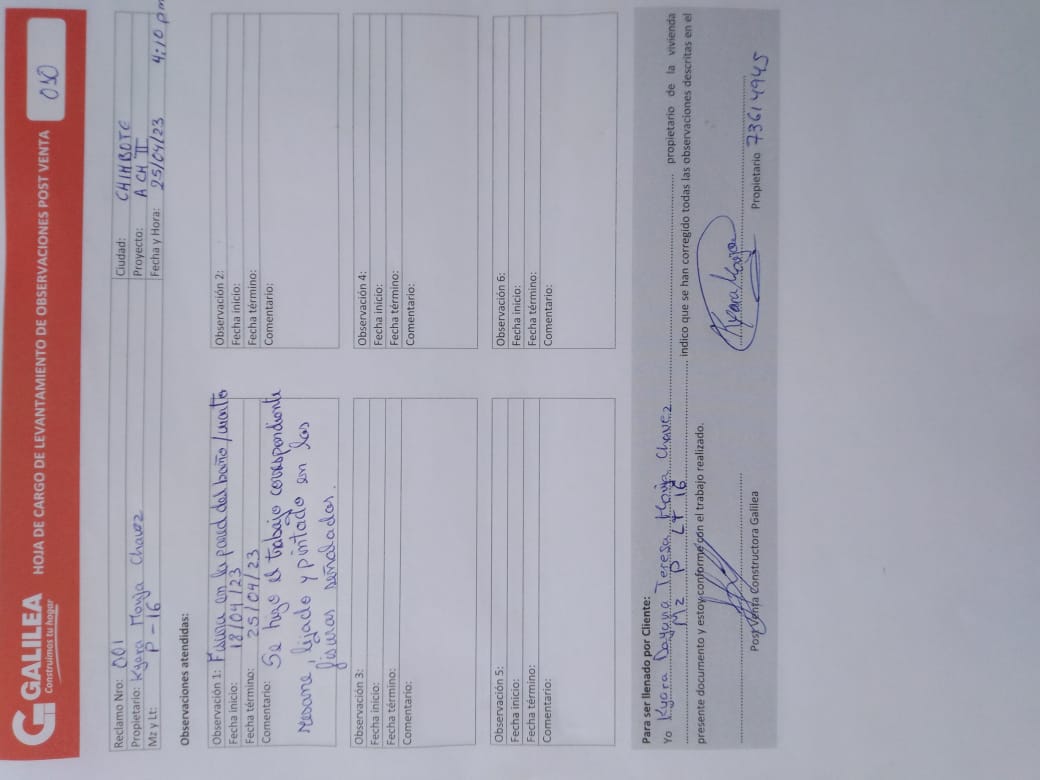 GALILEA
Construimos tu hogar
HOJA DE CARGO DE LEVANTAMIENTO DE OBSERVACIONES POST VENTA
010
Reclamo Nro: 001
Ciudad: CHIMBOTE
Propietario: Kyara Monja Chavez
Proyecto: A CH II
Mz y Lt: P - 16
Fecha y Hora: 25/04/23 4:10 pm
Observaciones atendidas:
Observación 1: Fisura en la pared del baño/
Fecha inicio: 18/04/23
Fecha término: 25/04/23
Comentario: Se hizo el trabajo correspondiente
resane, lijado y pintado en las
fisuras señaladas.
Observación 2:
Fecha inicio:
Fecha término:
Comentario:
Observación 3:
Fecha inicio:
Fecha término:
Comentario:
Observación 4:
Fecha inicio:
Fecha término:
Comentario:
Observación 5:
Fecha inicio:
Fecha término:
Comentario:
Observación 6:
Fecha inicio:
Fecha término:
Comentario:
Para ser llenado por Cliente:
Yo Kyara Dayana Teresa Monja Chavez propietario de la vivienda
Mz P Lt 16 indico que se han corregido todas las observaciones descritas en el
presente documento y estoy conforme con el trabajo realizado.
Kyara Monja
Post Venta Constructora Galilea
Propietario 73614945